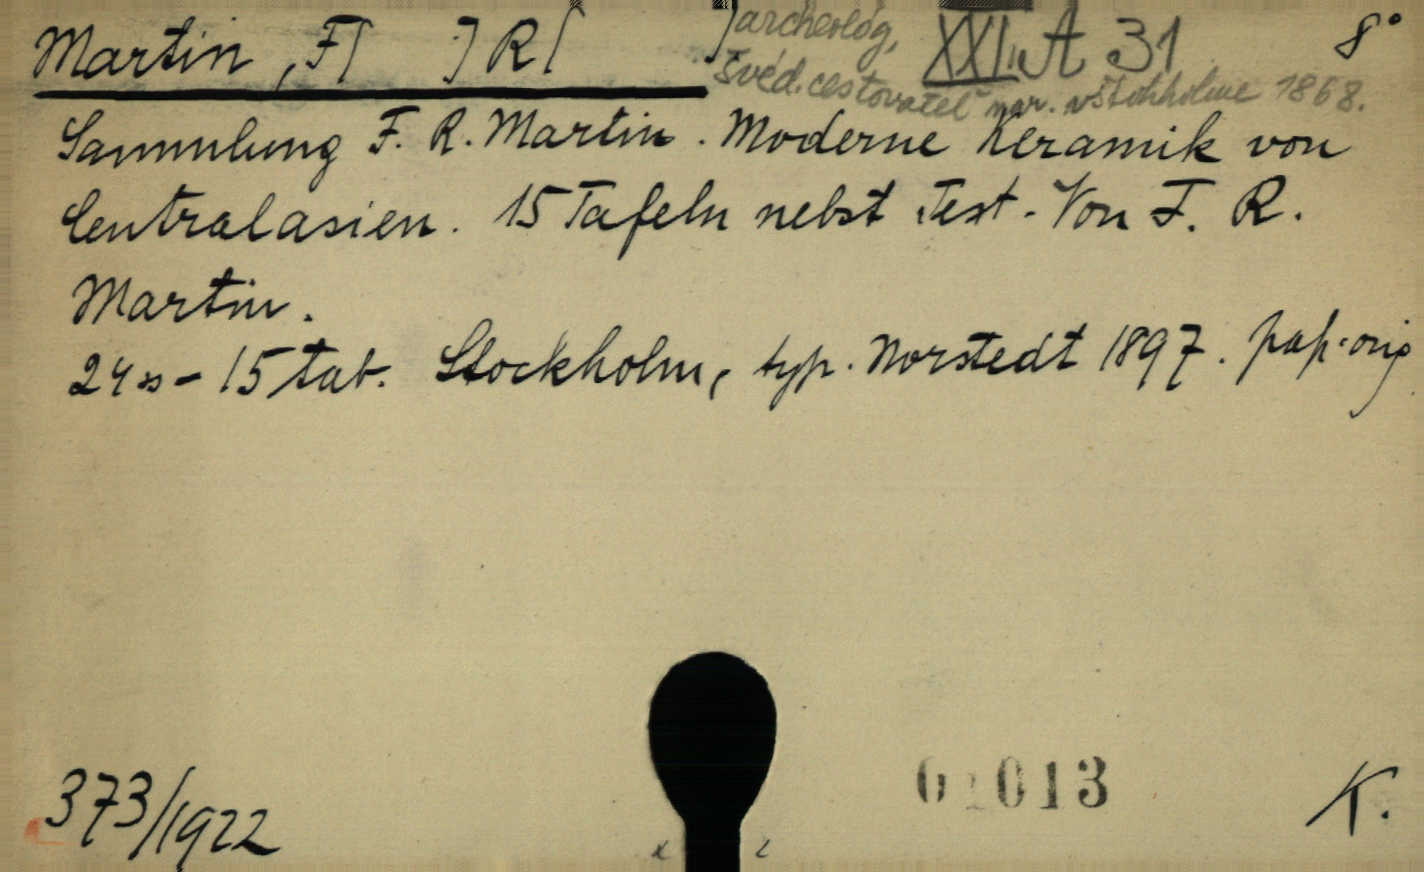 Martin, F[ ] R[ ]
archeolog, XXI. A 31 8°
švéd. cestovatel nar. v Štokholme 1868.
Sammlung F. R. Martin. Moderne Keramik von
Centralasien. 15 Tafeln nebst Text. Von F. R.
Martin.
24 s - 15 tab. Stockholm, typ. Norstedt 1897. pap. orig
373/1922
013
K.